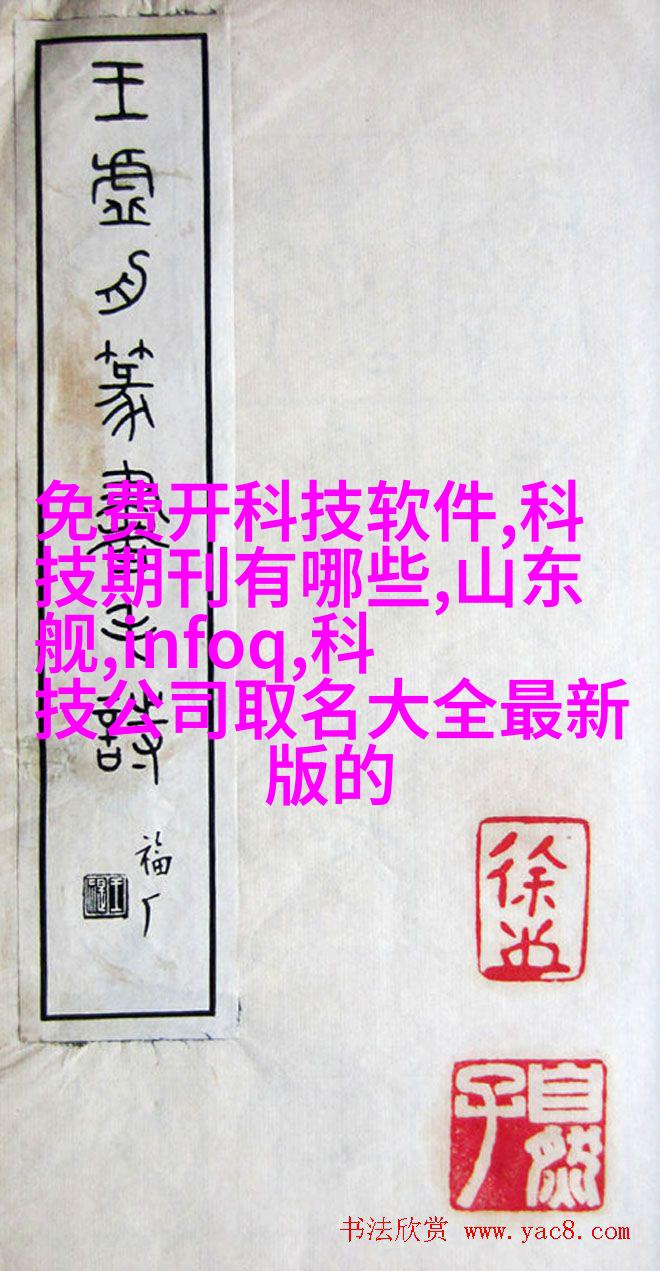 王虛舟篆書
詩
福厂
免费开科技软件,科
技期刊有哪些,山东
舰,infoq,科
技公司取名大全最新
版的
自然
子
书法欣赏 www.yac8.com